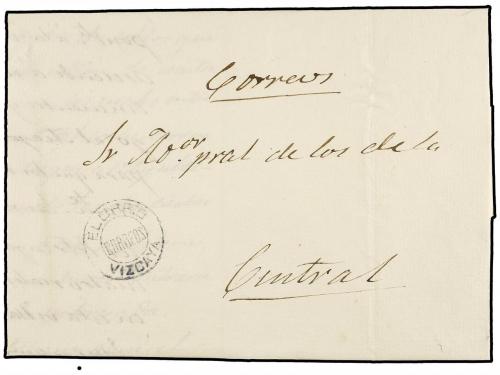 Correos
Sr Ador. pral de los de la
Central
ELORRIO
CORREOS
VIZCAYA